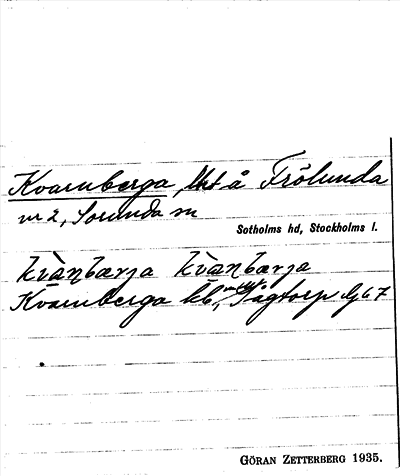 Kvarnberga, lht å Frölunda
nr 2, Sorunda sn
Sotholms hd, Stockholms l.
kvànbærja kvànbærja
Kvarnberga kb,
GÖRAN ZETTERBERG 1935.